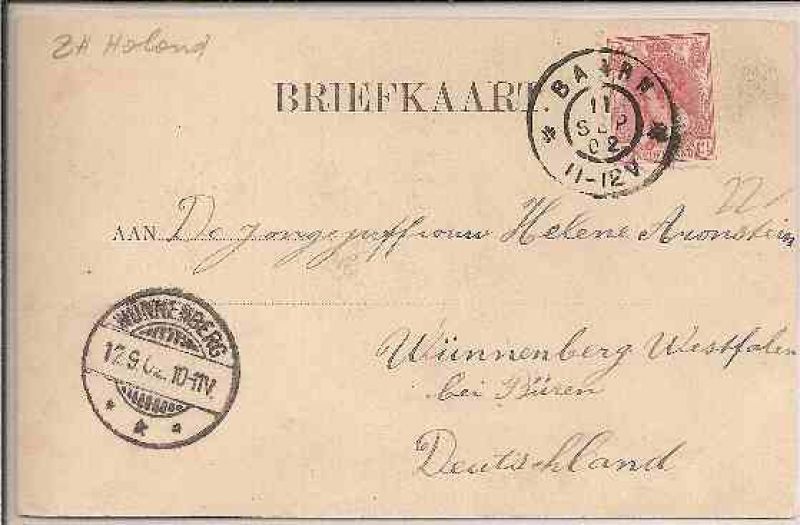 ZH Holond
BRIEFKAART
BAARN
11
SEP
02
11-12V
22
AAN De Jongejuffrouw Helene Aronstein
Wünnenberg Westfalen
bei Büren
Deutschland
WÜNNENBERG
12.9.02.10-11V.